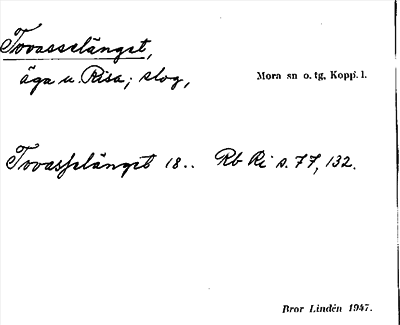 Tovasslänget,
äga u. Risa; slog,
Mora sn o. tg, Kopp. l.
Tovasslänget 18.. Rb Ri s. 77, 132.
Bror Lindén 1947.